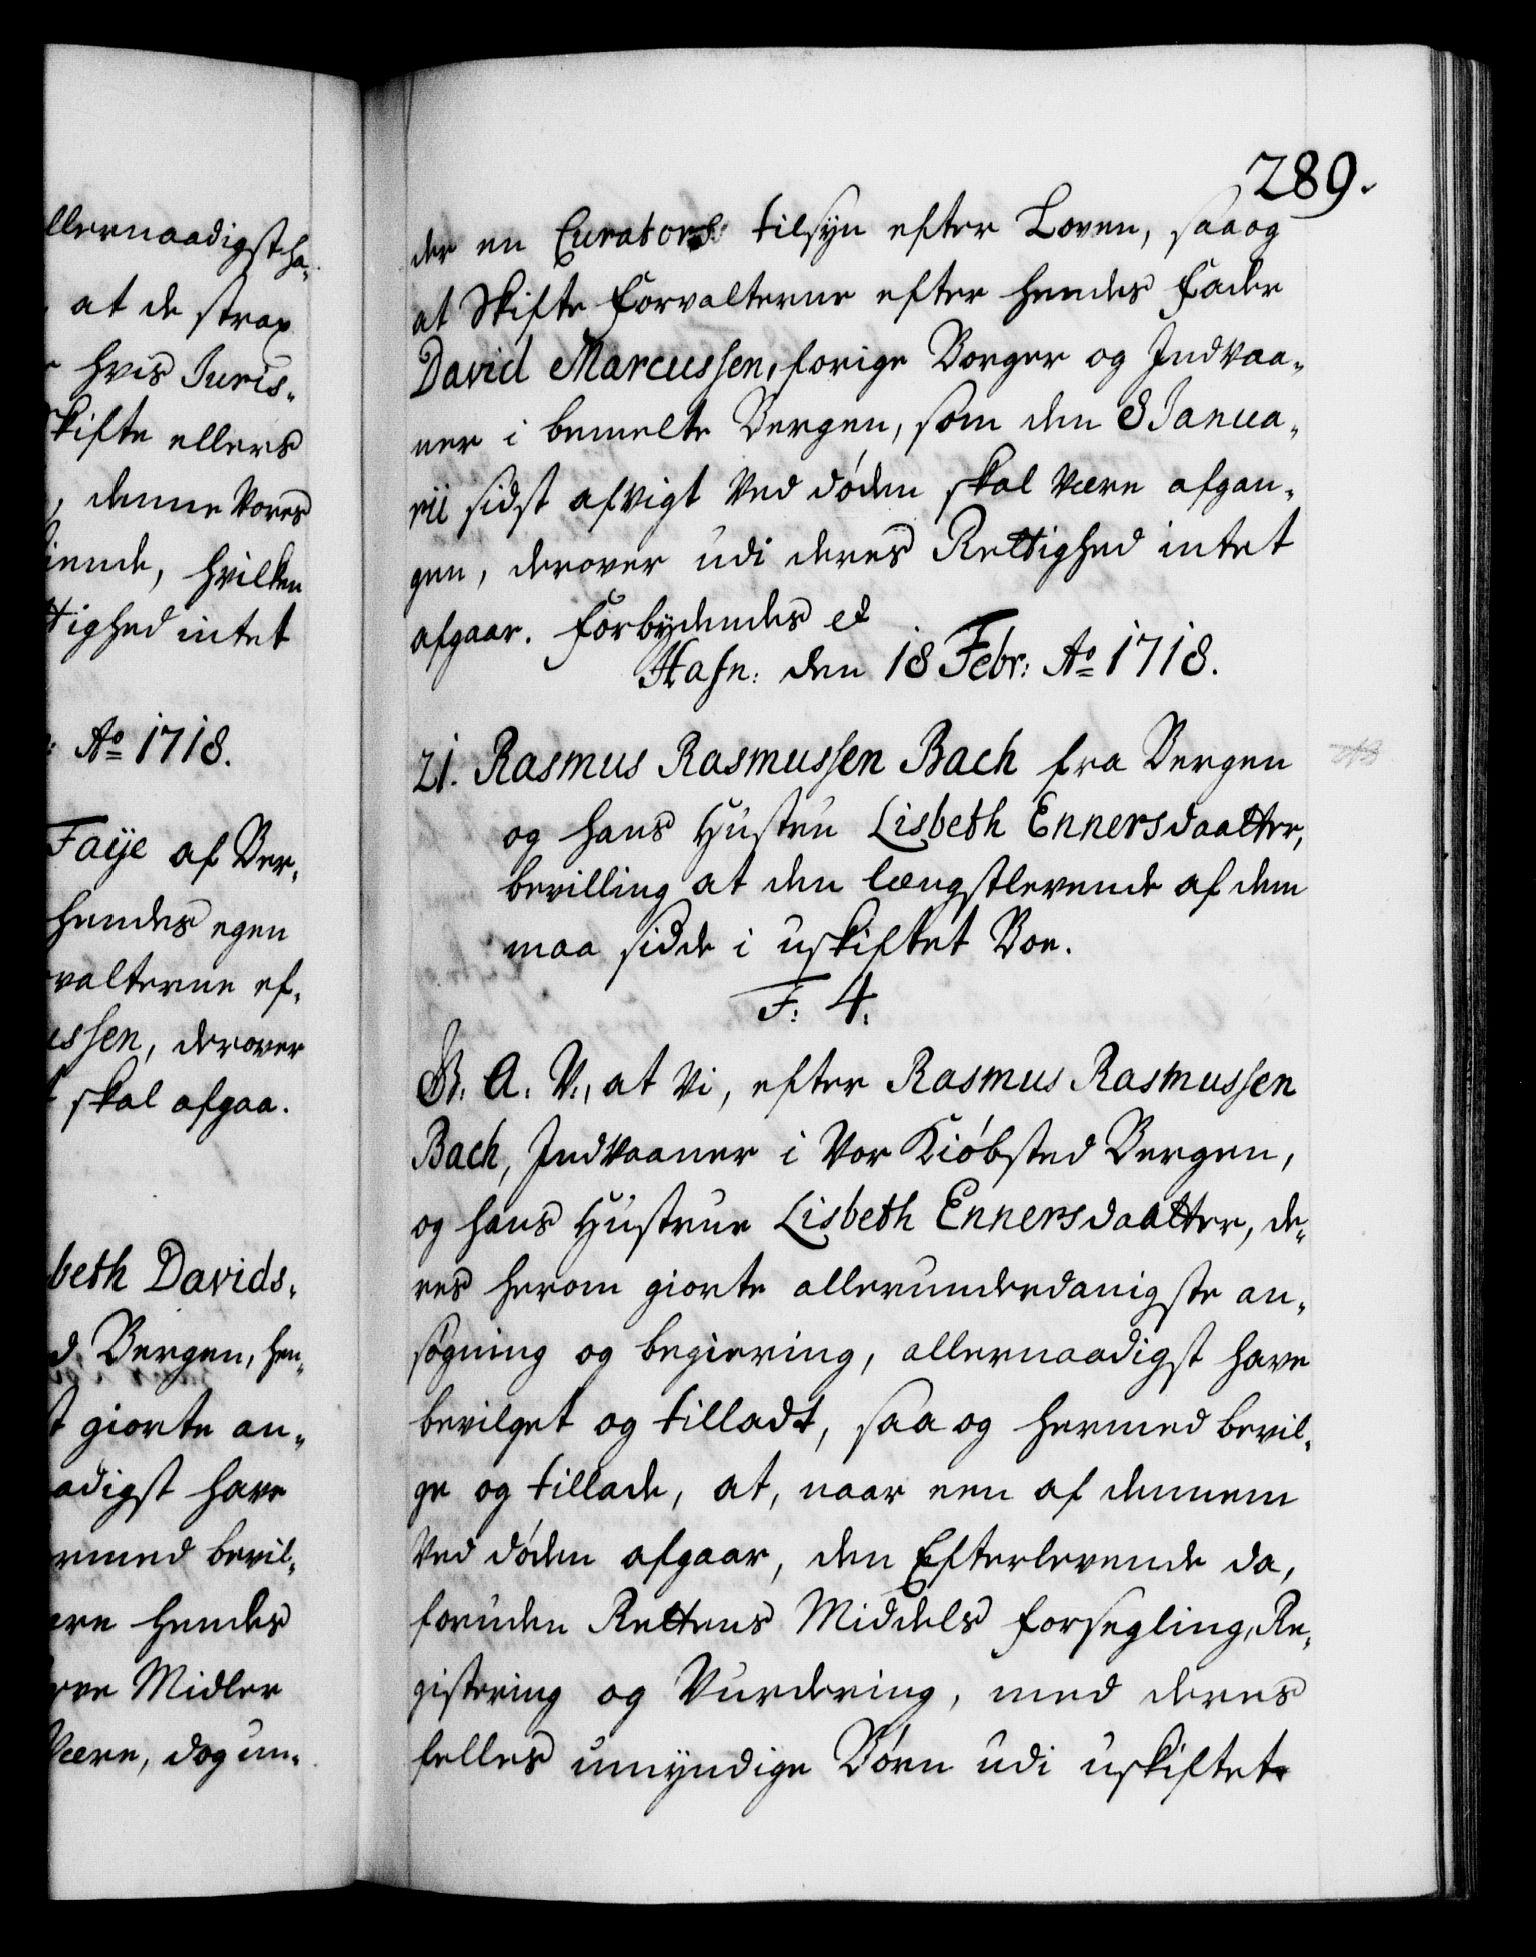 llernaadigst ha-
at de strax
hvis Juris-
Skifte ellers
, denne Vores
iende, hvilken
tighed intet
: Aº 1718.
Faije af Ber-
hendes egen
valterne ef-
ussen, derover
t skal afgaa.
beth Davids-
d Bergen, hen-
t giorte an-
adigst have
rmed bevil-
ere hendes
rve Midler
være, dog un-
289.
der en Curators tilsyn efter Loven, saa og
at Skifte Forvalterne efter hendes Fader
David Marcussen, forige Borger og Indvaa-
ner i bemelte Bergen, som den 8 Janua-
rii sidst afvigt Ved døden skal være afgan-
gen, derover udi deres Rettighed intet
afgaar. Forbydendes et
Hafn: den 18 Febr: Aº 1718.
21. Rasmus Rasmussen Bach fra Bergen
og hans Hustru Lisbeth Ennersdaatter,
bevilling at den længstlevende af dem
maa sidde i uskiftet Boe.
F: 4:
G. A. V., at Vi, efter Rasmus Rasmussen
Bach, Indvaaner i Vor Kiøbsted Bergen,
og hans Hustrue Lisbeth Ennersdaatter, de-
res herom giorte allerunderdanigste an-
søgning og begiering, allernaadigst have
bevilget og tilladt, saa og hermed bevil-
ge og tillade, at, naar een af dennem
Ved døden afgaar, den Efterlevende da,
foruden Rettens Middels forsegling, Re-
gistering og Vurdering, med deres
felles umyndige Børn udi uskiftet